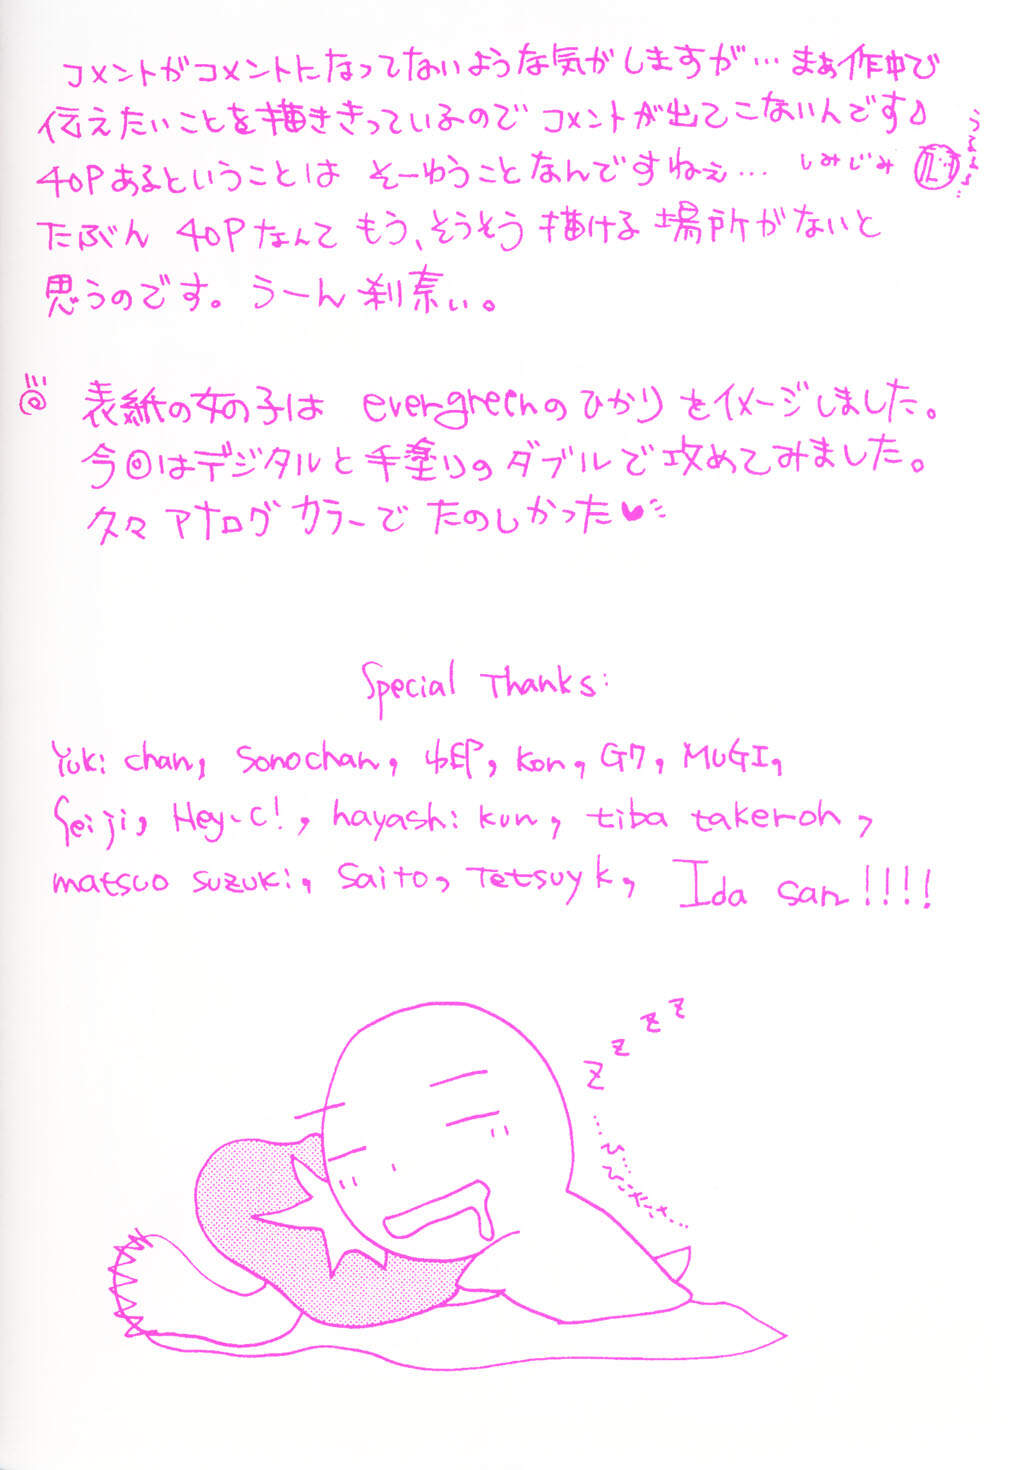 コメントがコメントになってないような気がしますが…まぁ作中で
伝えたいことを描ききっているのでコメントが出てこないんです♪
40Pあるということは そーゆうことなんですねぇ… しみじみ
たぶん 40Pなんて もう、そうそう描ける場所がないと
思うのです。うーん刹奈い。
表紙の女の子は evergreenのひかりをイメージしました。
今回はデジタルと手塗りのダブルで攻めてみました。
久々アナログカラーでたのしかった♥
Special Thanks:
Yuki chan, Sonochan, kon, G7, MUGI,
Seiji, Hey-C!, hayashi kun, tiba takeroh,
matsuo suzuki, Saito, Tetsuyk, Ida san!!!!
z z z z